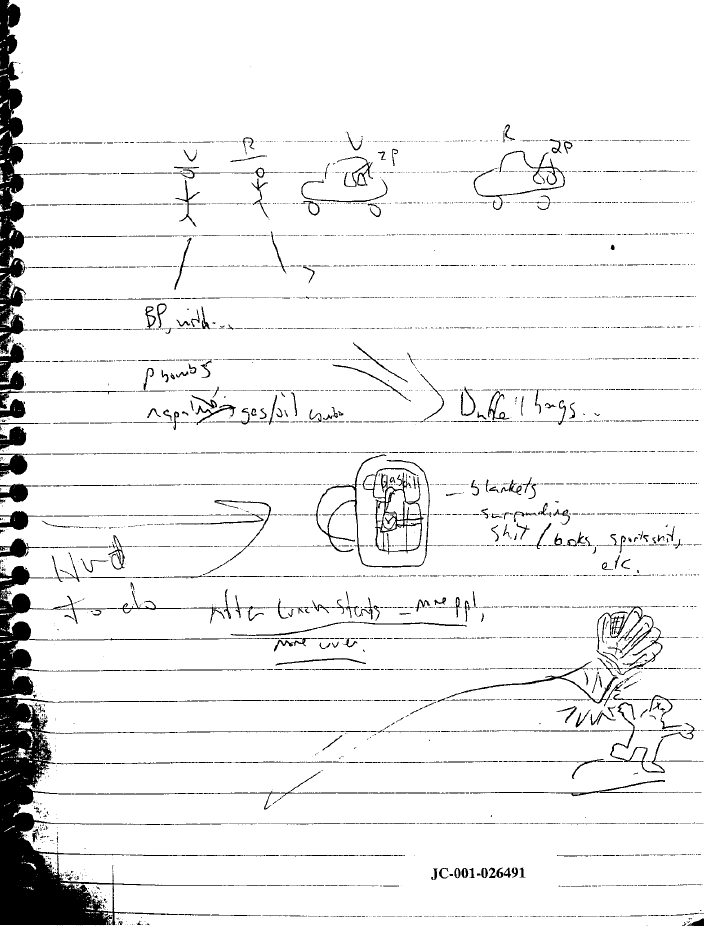 V R V R
2P 2P
BP, with...
P bombs
gas/oil combo
Duffell bags...
Gas oil
- blankets
- surrounding
shit / books, sportsshit,
etc.
to do
After Lunch Starts - more ppl,
more cover.
JC-001-026491